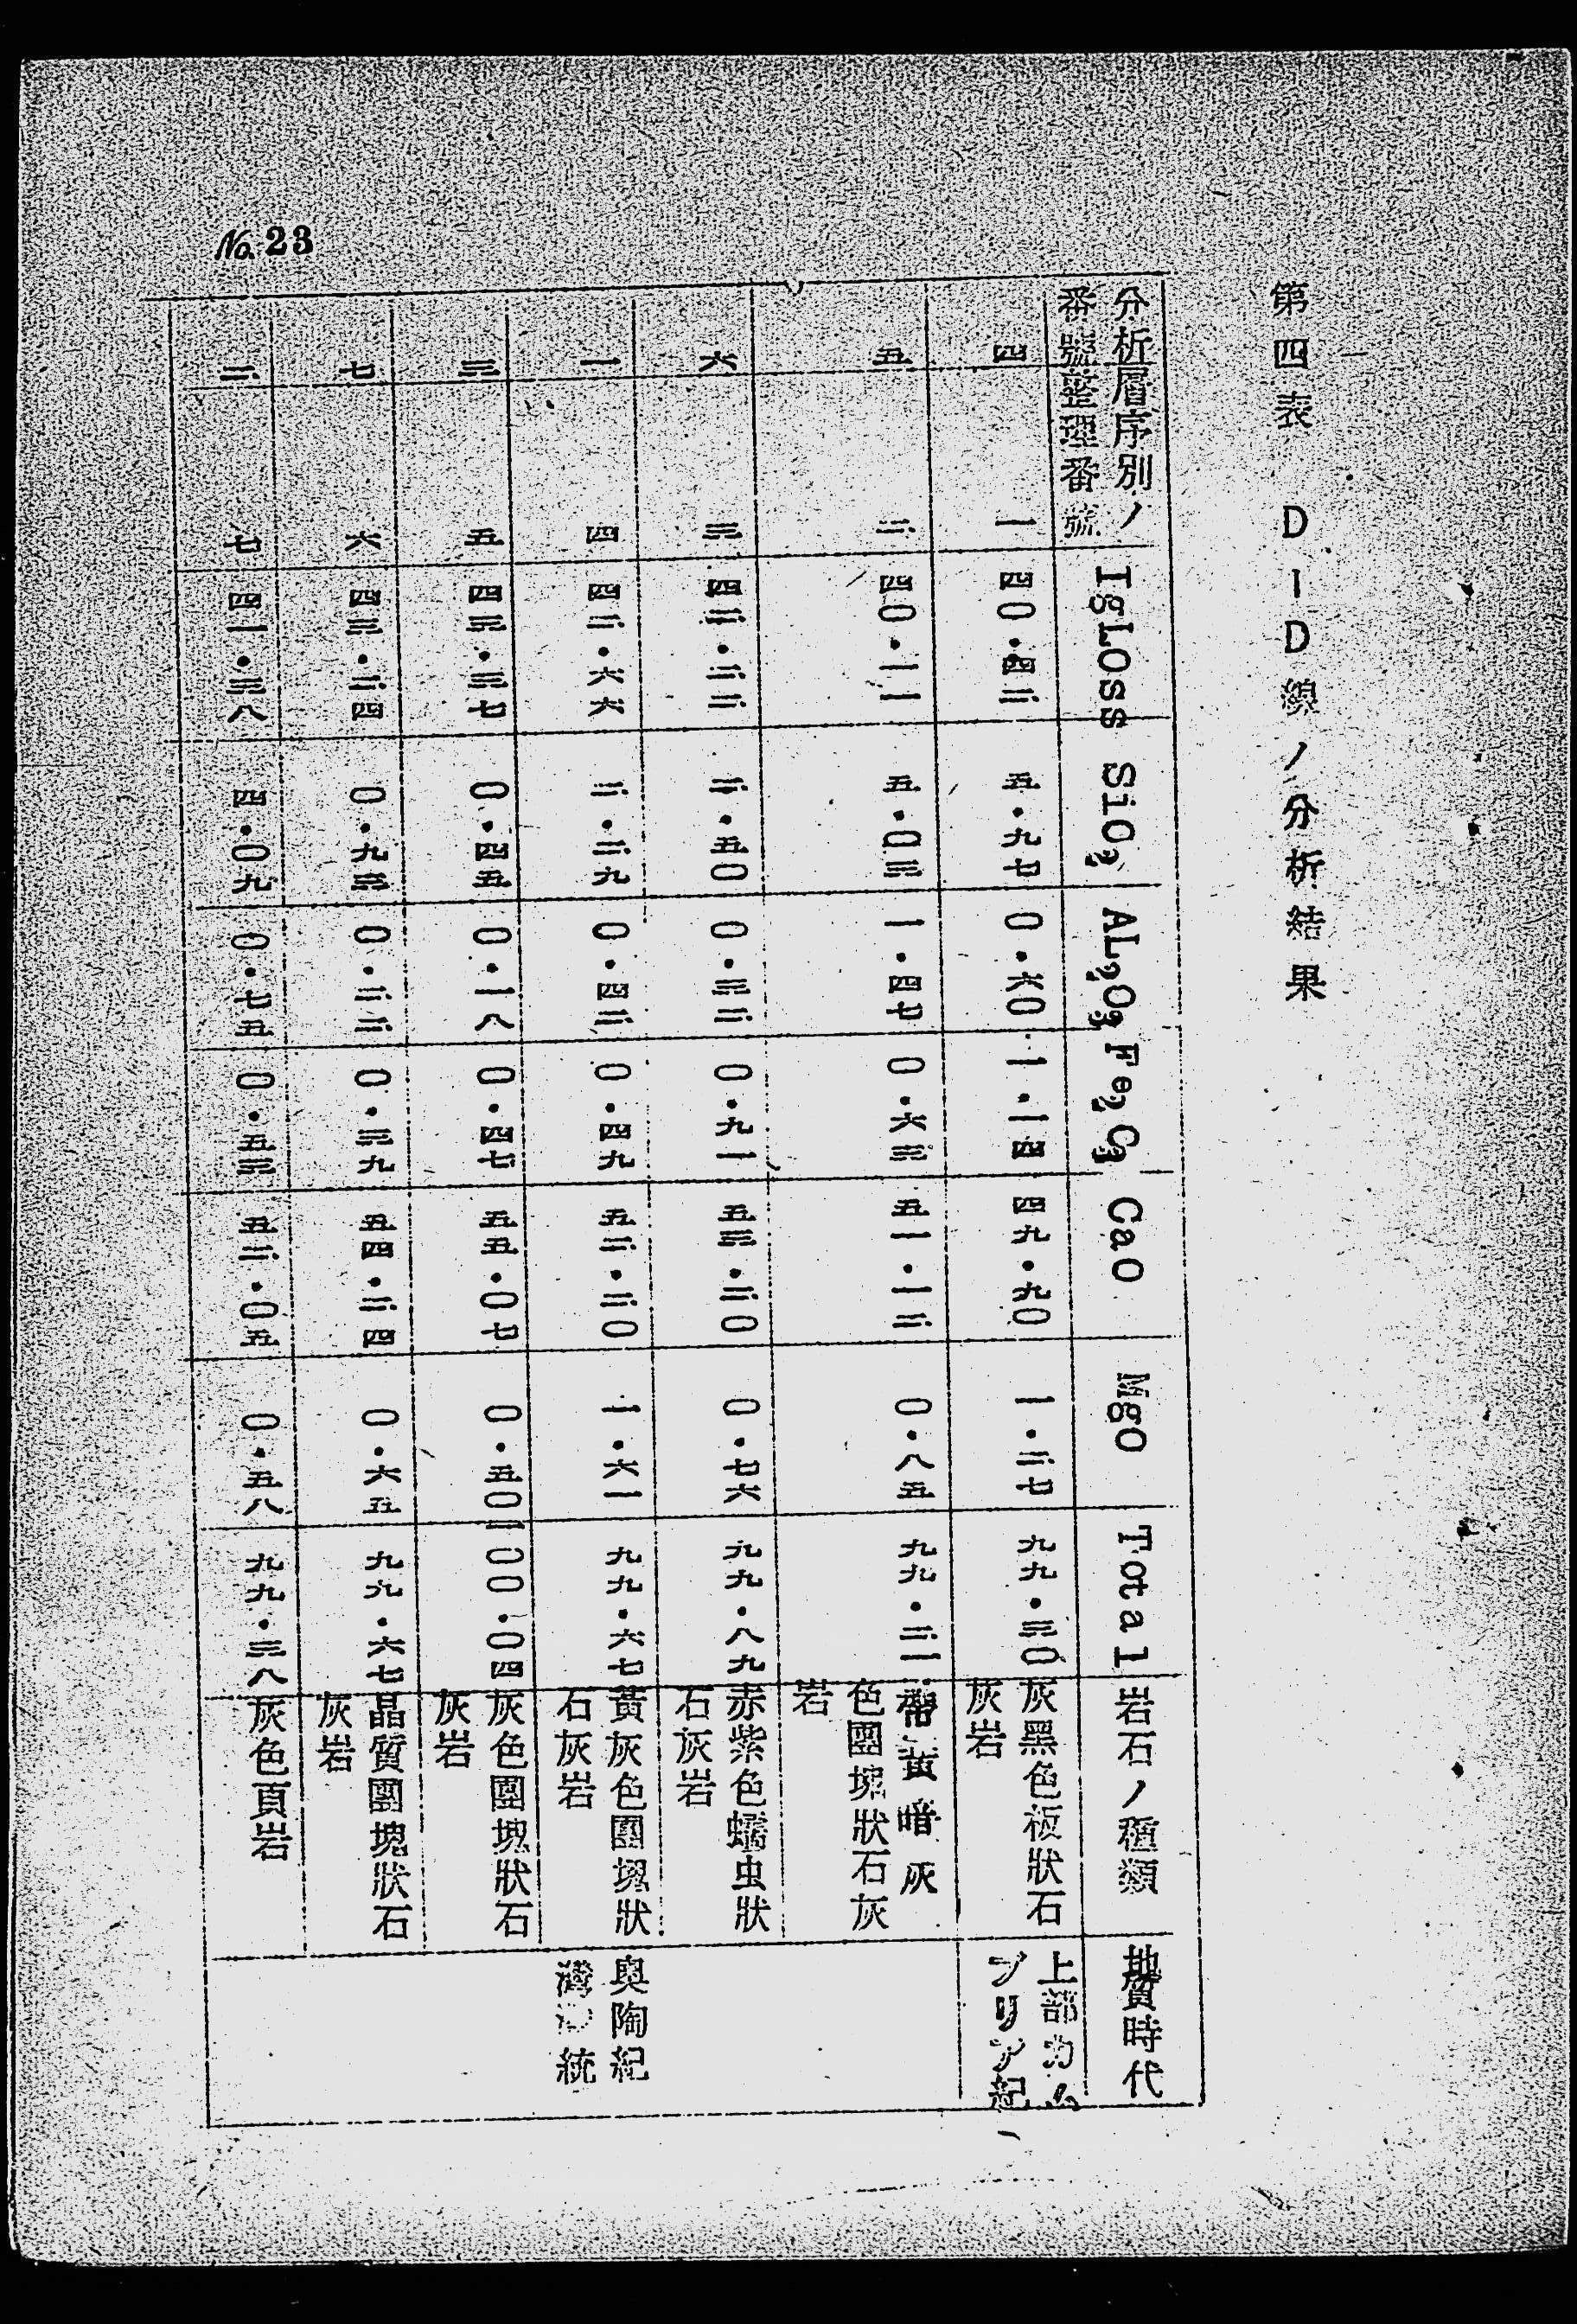 第四表 D－D線ノ分析結果
分析番號 層序別ノ整理番號 IgLOss SiO₂ AL₂O₃ Fe₂O₃ CaO MgO Total 岩石ノ種類 地質時代
四 一 四〇・四二 五・九七 〇・六〇 一・一四 四九・九〇 一・二七 九九・三〇 灰黑色板狀石灰岩 上部カムブリア紀
五 二 四〇・一一 五・〇三 一・四七 〇・六三 五一・一二 〇・八五 九九・二一 帶黃暗灰色團塊狀石灰岩
六 三 四二・二二 二・五〇 〇・三二 〇・九一 五三・二〇 〇・七六 九九・八九 赤紫色蠕虫狀石灰岩
一 四 四二・六六 二・二九 〇・四二 〇・四九 五二・二〇 一・六一 九九・六七 黃灰色團塊狀石灰岩 奧陶紀灣統
三 五 四三・三七 〇・四五 〇・一八 〇・四七 五五・〇七 〇・五〇 一〇〇・〇四 灰色團塊狀石灰岩
七 六 四三・二四 〇・九三 〇・二二 〇・三九 五四・二四 〇・六五 九九・六七 晶質團塊狀石灰岩
二 七 四一・三八 四・〇九 〇・七五 〇・五三 五二・〇五 〇・五八 九九・三八 灰色頁岩
No. 23